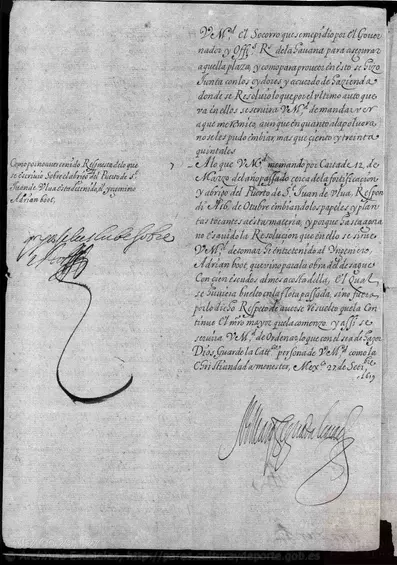 V. Md. el Socorro que se me pidio por el Gouer
nador y Offes. Rs. de la hauana para asegurar
aquella plaza, y como para proueer en esto se hizo
Junta con los oydores y acuerdo de hazienda
donde se Resoluio lo que por el vltimo auto que
va en ellos se seruira V. Md. de mandar ver
aunque en quanto a la poluora,
no se les pudo embiar mas que ciento y treinta
quintales
Como por no auer venido Respuesta de lo que
se escriuio Sobre el abrigo del Puerto de St.
Juan de Vlua esta detenido el yngeniero
Adrian boot,
7 A lo que V. Md. me mando por Carta de 12 de
Marzo del ano passado cerca de la fortificacion
y abrigo del Puerto de St. Juan de Vlua, Respon
di a 16 de Octubre embiando los papeles y plan
tas tocantes a esta materia, y porque hasta agora
no e sauido la Resolucion que en ello se sirue
V. Md. de tomar e entretenido al Yngeniero
Adrian boot, que vino para la obra del desague
Con cien escudos al mes a costa della, el Qual
se huuiera buelto en la flota passada, sino fuera
por lo dicho Respecto de auerse Resuelto que la
Continue el mro mayor que la comenzo y assi se
seruira V. Md. de Ordenar lo que con el se a de hazer
Dios Guarde la Catca. persona de V. Md. como la
Christiandad a menester, Mexco 27 de Sete
1619